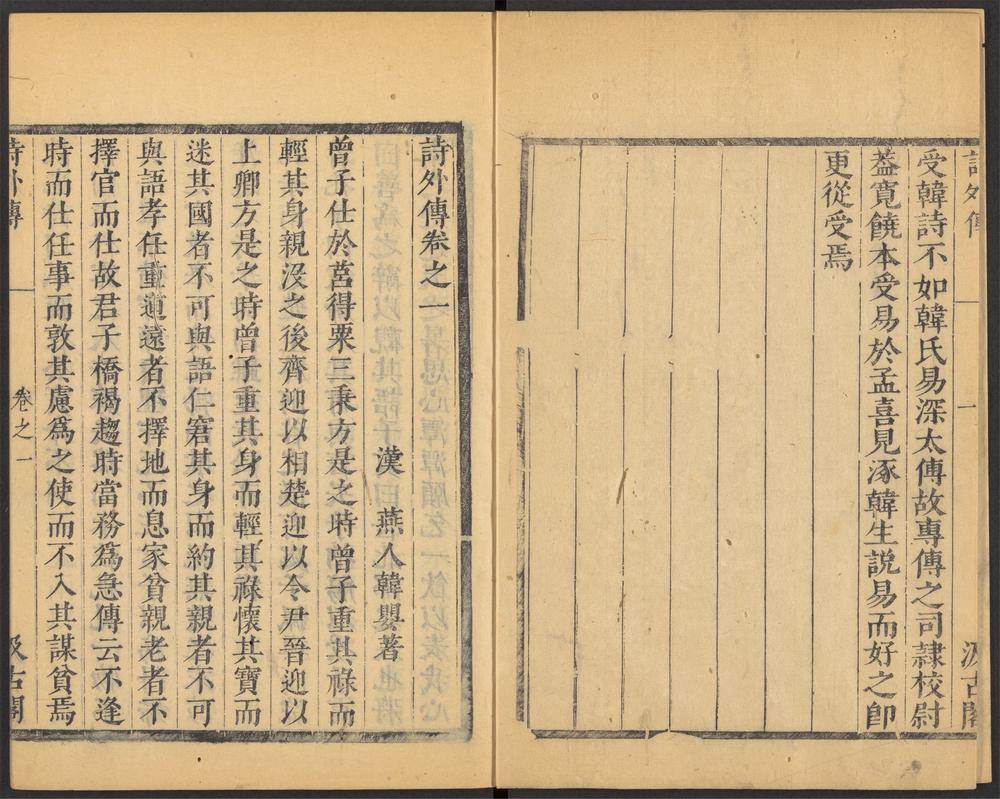 詩外傳
一
汲古閣
受韓詩不如韓氏易深太傅故專傳之司隸校尉
葢寬饒本受易於孟喜見涿韓生說易而好之卽
更從受焉
詩外傳卷之一
漢 燕人韓嬰著
曾子仕於莒得粟三秉方是之時曾子重其祿而
輕其身親沒之後齊迎以相楚迎以令尹晉迎以
上卿方是之時曾子重其身而輕其祿懷其寶而
迷其國者不可與語仁窘其身而約其親者不可
與語孝任重道遠者不擇地而息家貧親老者不
擇官而仕故君子橋褐趨時當務爲急傳云不逢
時而仕任事而敦其慮爲之使而不入其謀貧焉
詩外傳
卷之一
汲古閣